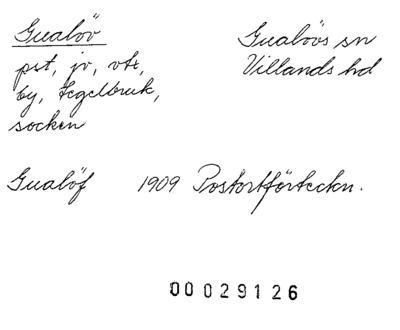 Gualöv Gualövs sn
pst, jv, vtr, Villands hd
by, tegelbruk,
socken
Gualöf 1909 Postortförteckn.
00029126